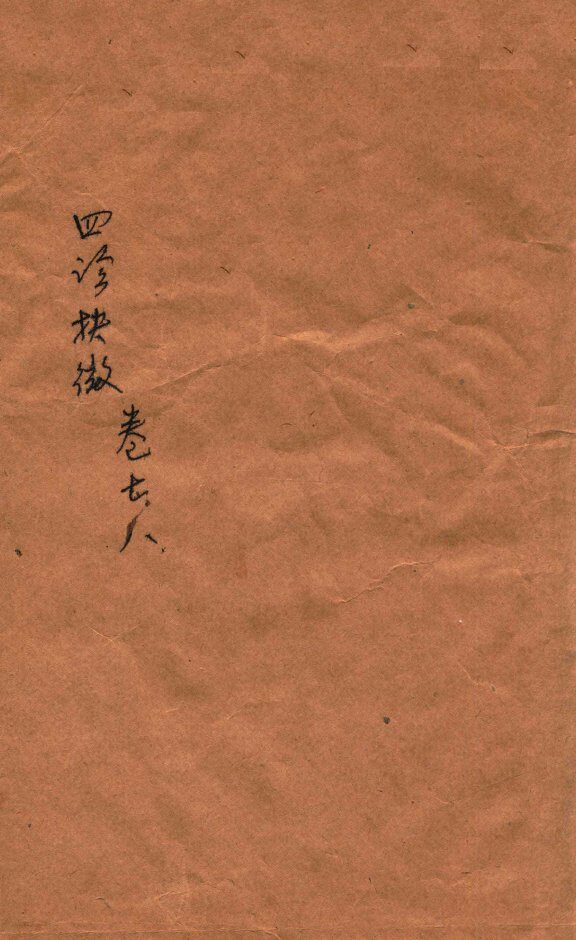 四诊抉微
卷七八